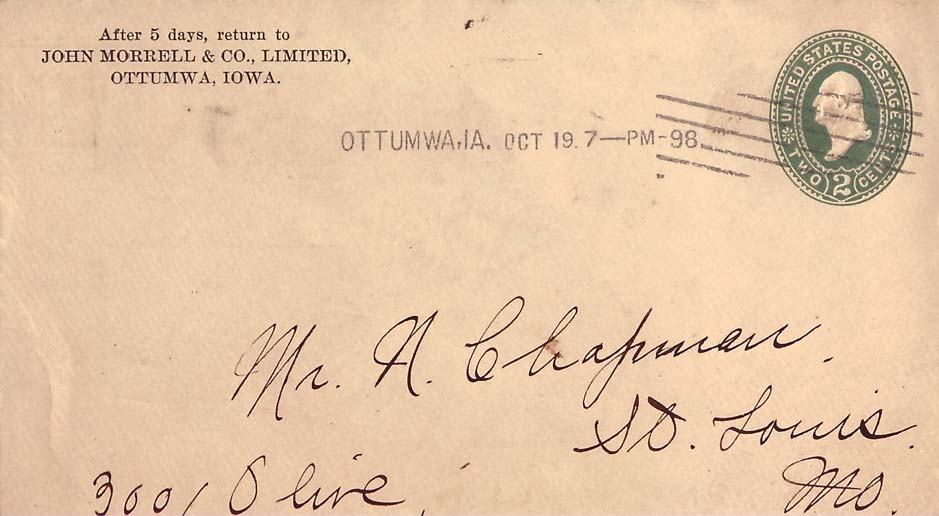 After 5 days, return to
JOHN MORRELL & CO., LIMITED,
OTTUMWA, IOWA.
UNITED STATES POSTAGE
TWO 2 CENTS
OTTUMWA, IA. OCT 19. 7—PM-98
Mr. N. Chapman.
St. Louis.
Mo.
3001 Olive.